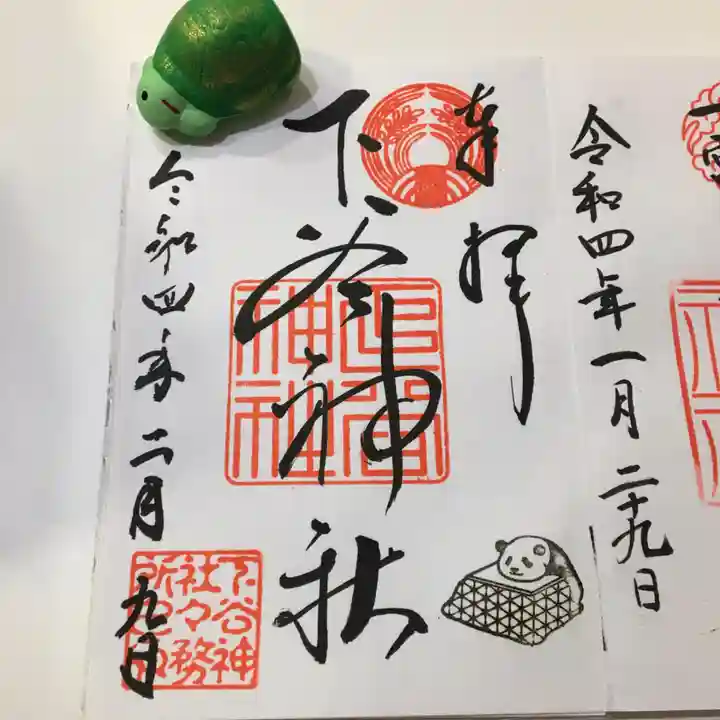 令和四年一月二十九日
奉拝
下谷神社
下谷神社
令和四年二月九日
下谷神
社々務
所之印